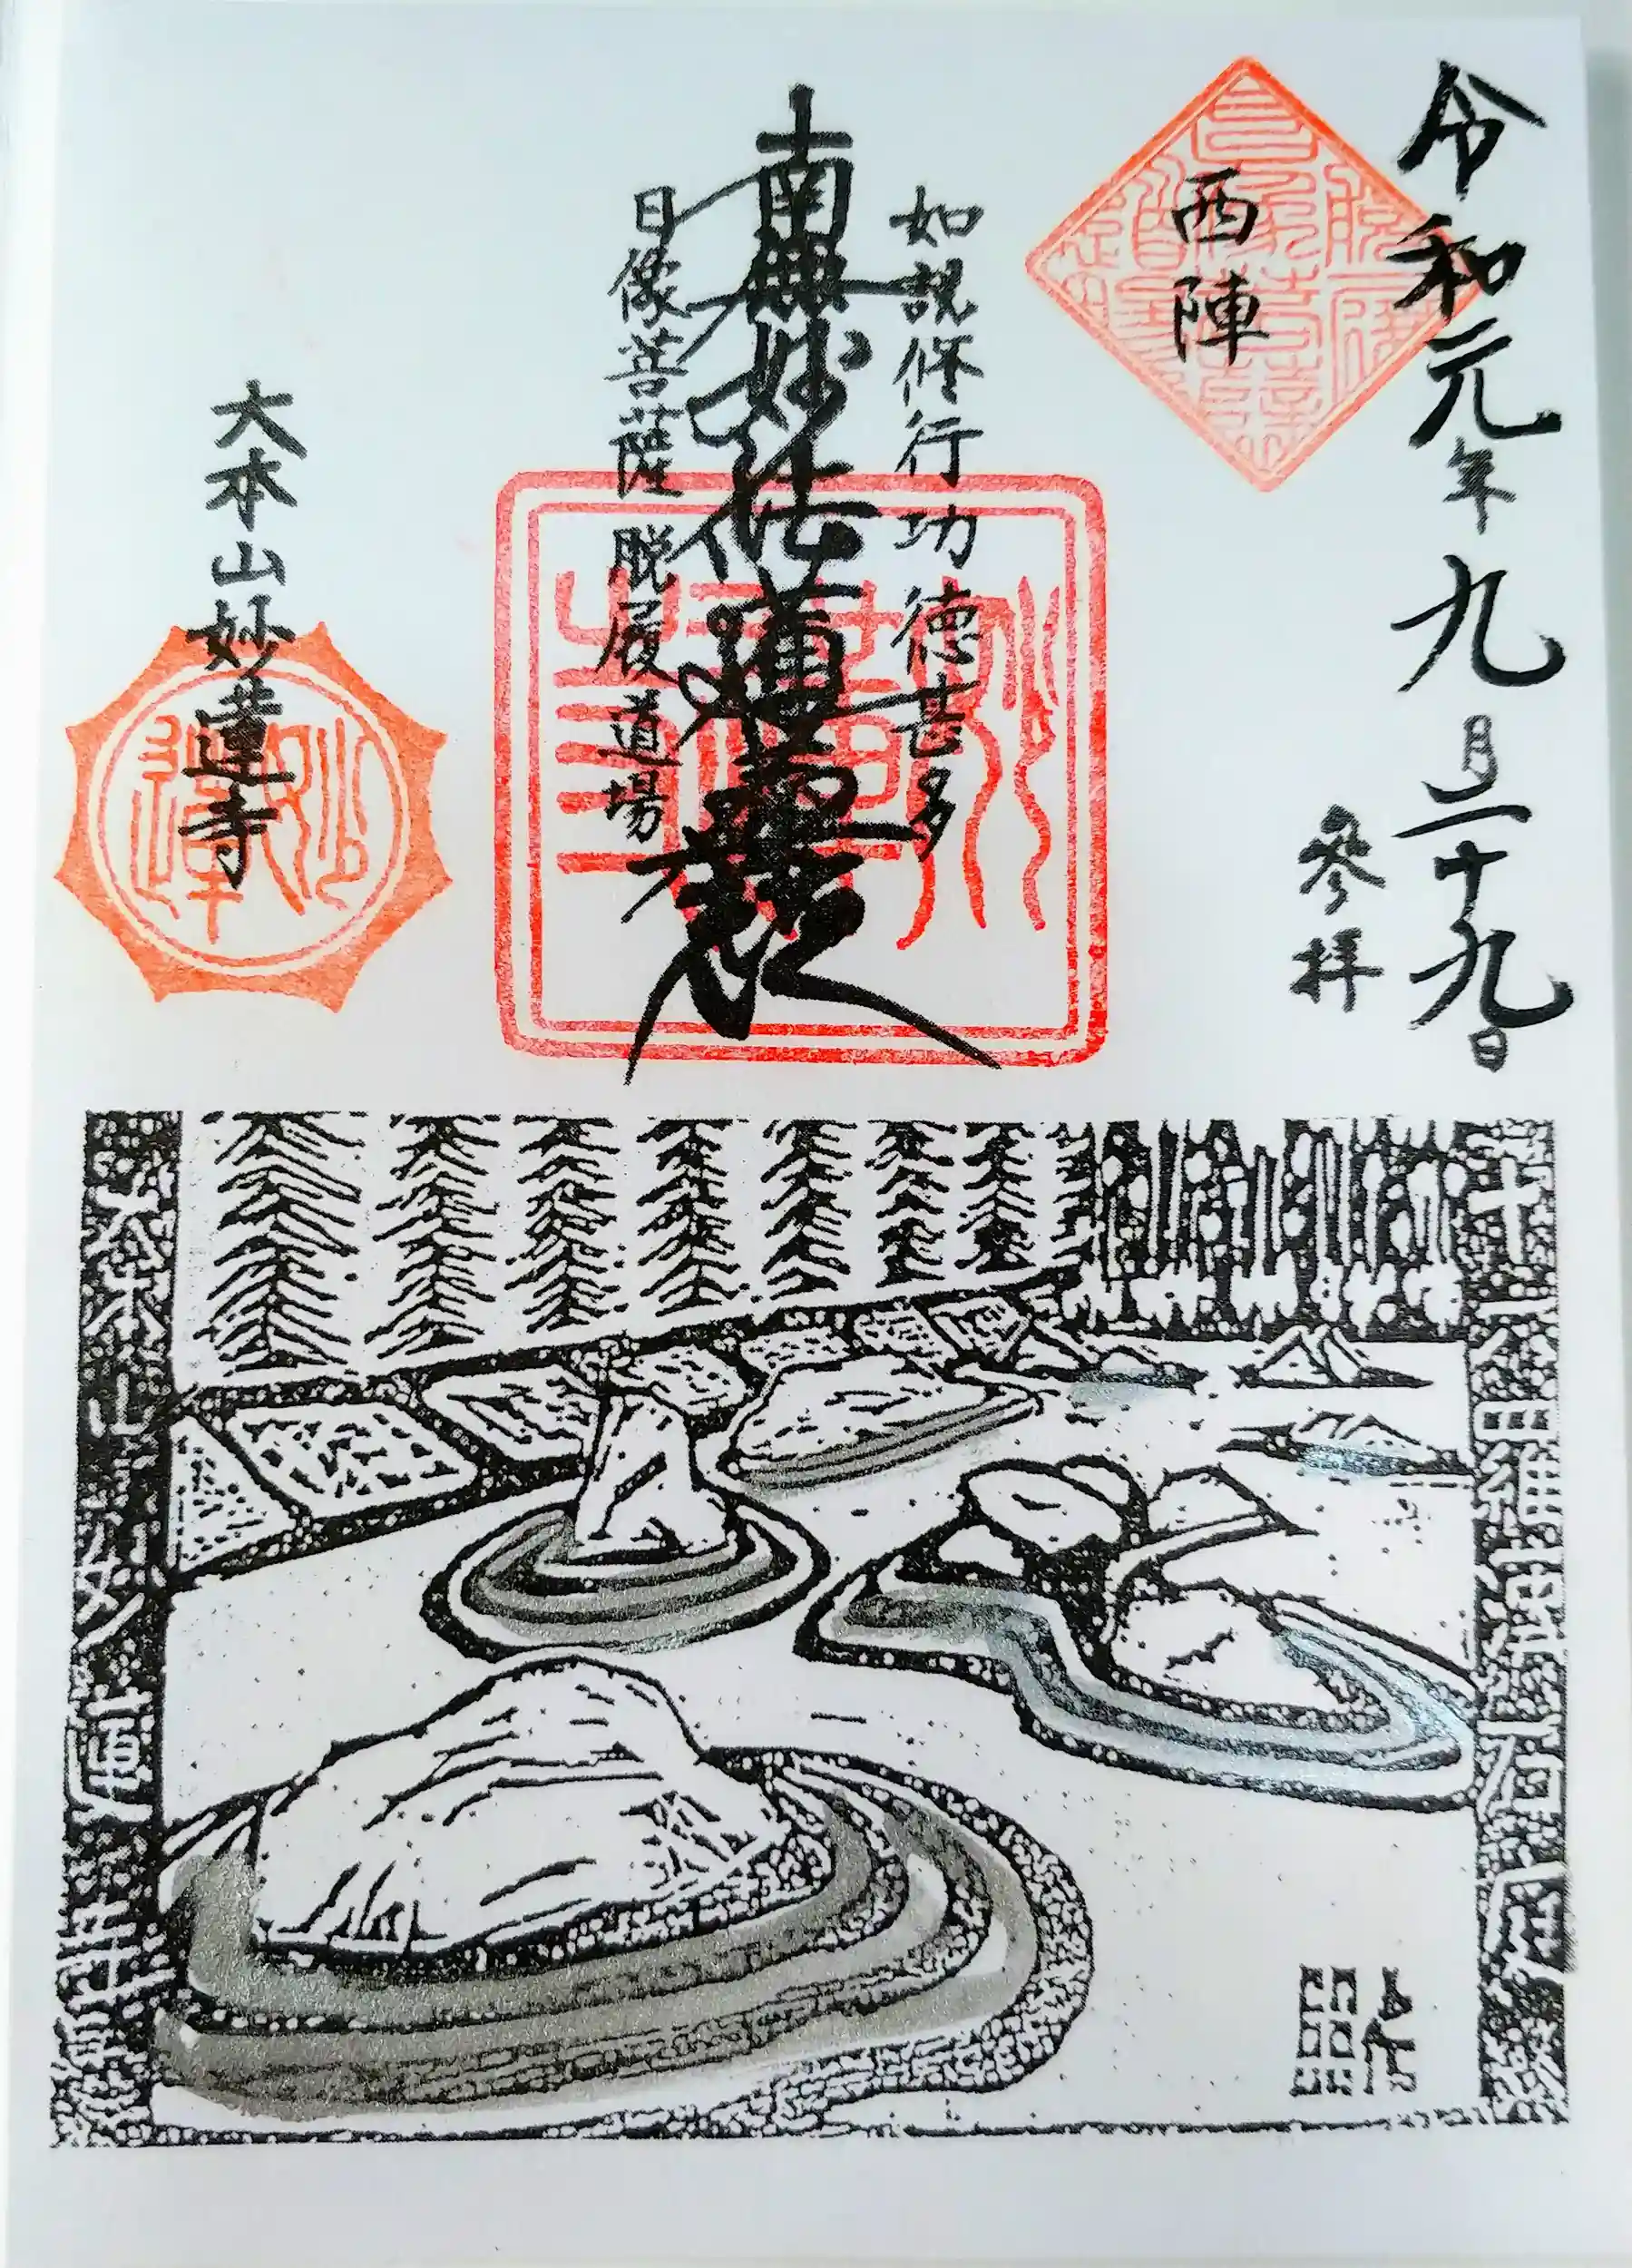 令和元年九月二十九日
参拝
西陣
如説修行功徳甚多
南無妙法蓮華経
日像菩薩 脱履道場
大本山妙蓮寺
妙蓮
十六羅漢石庭
大本山妙蓮寺